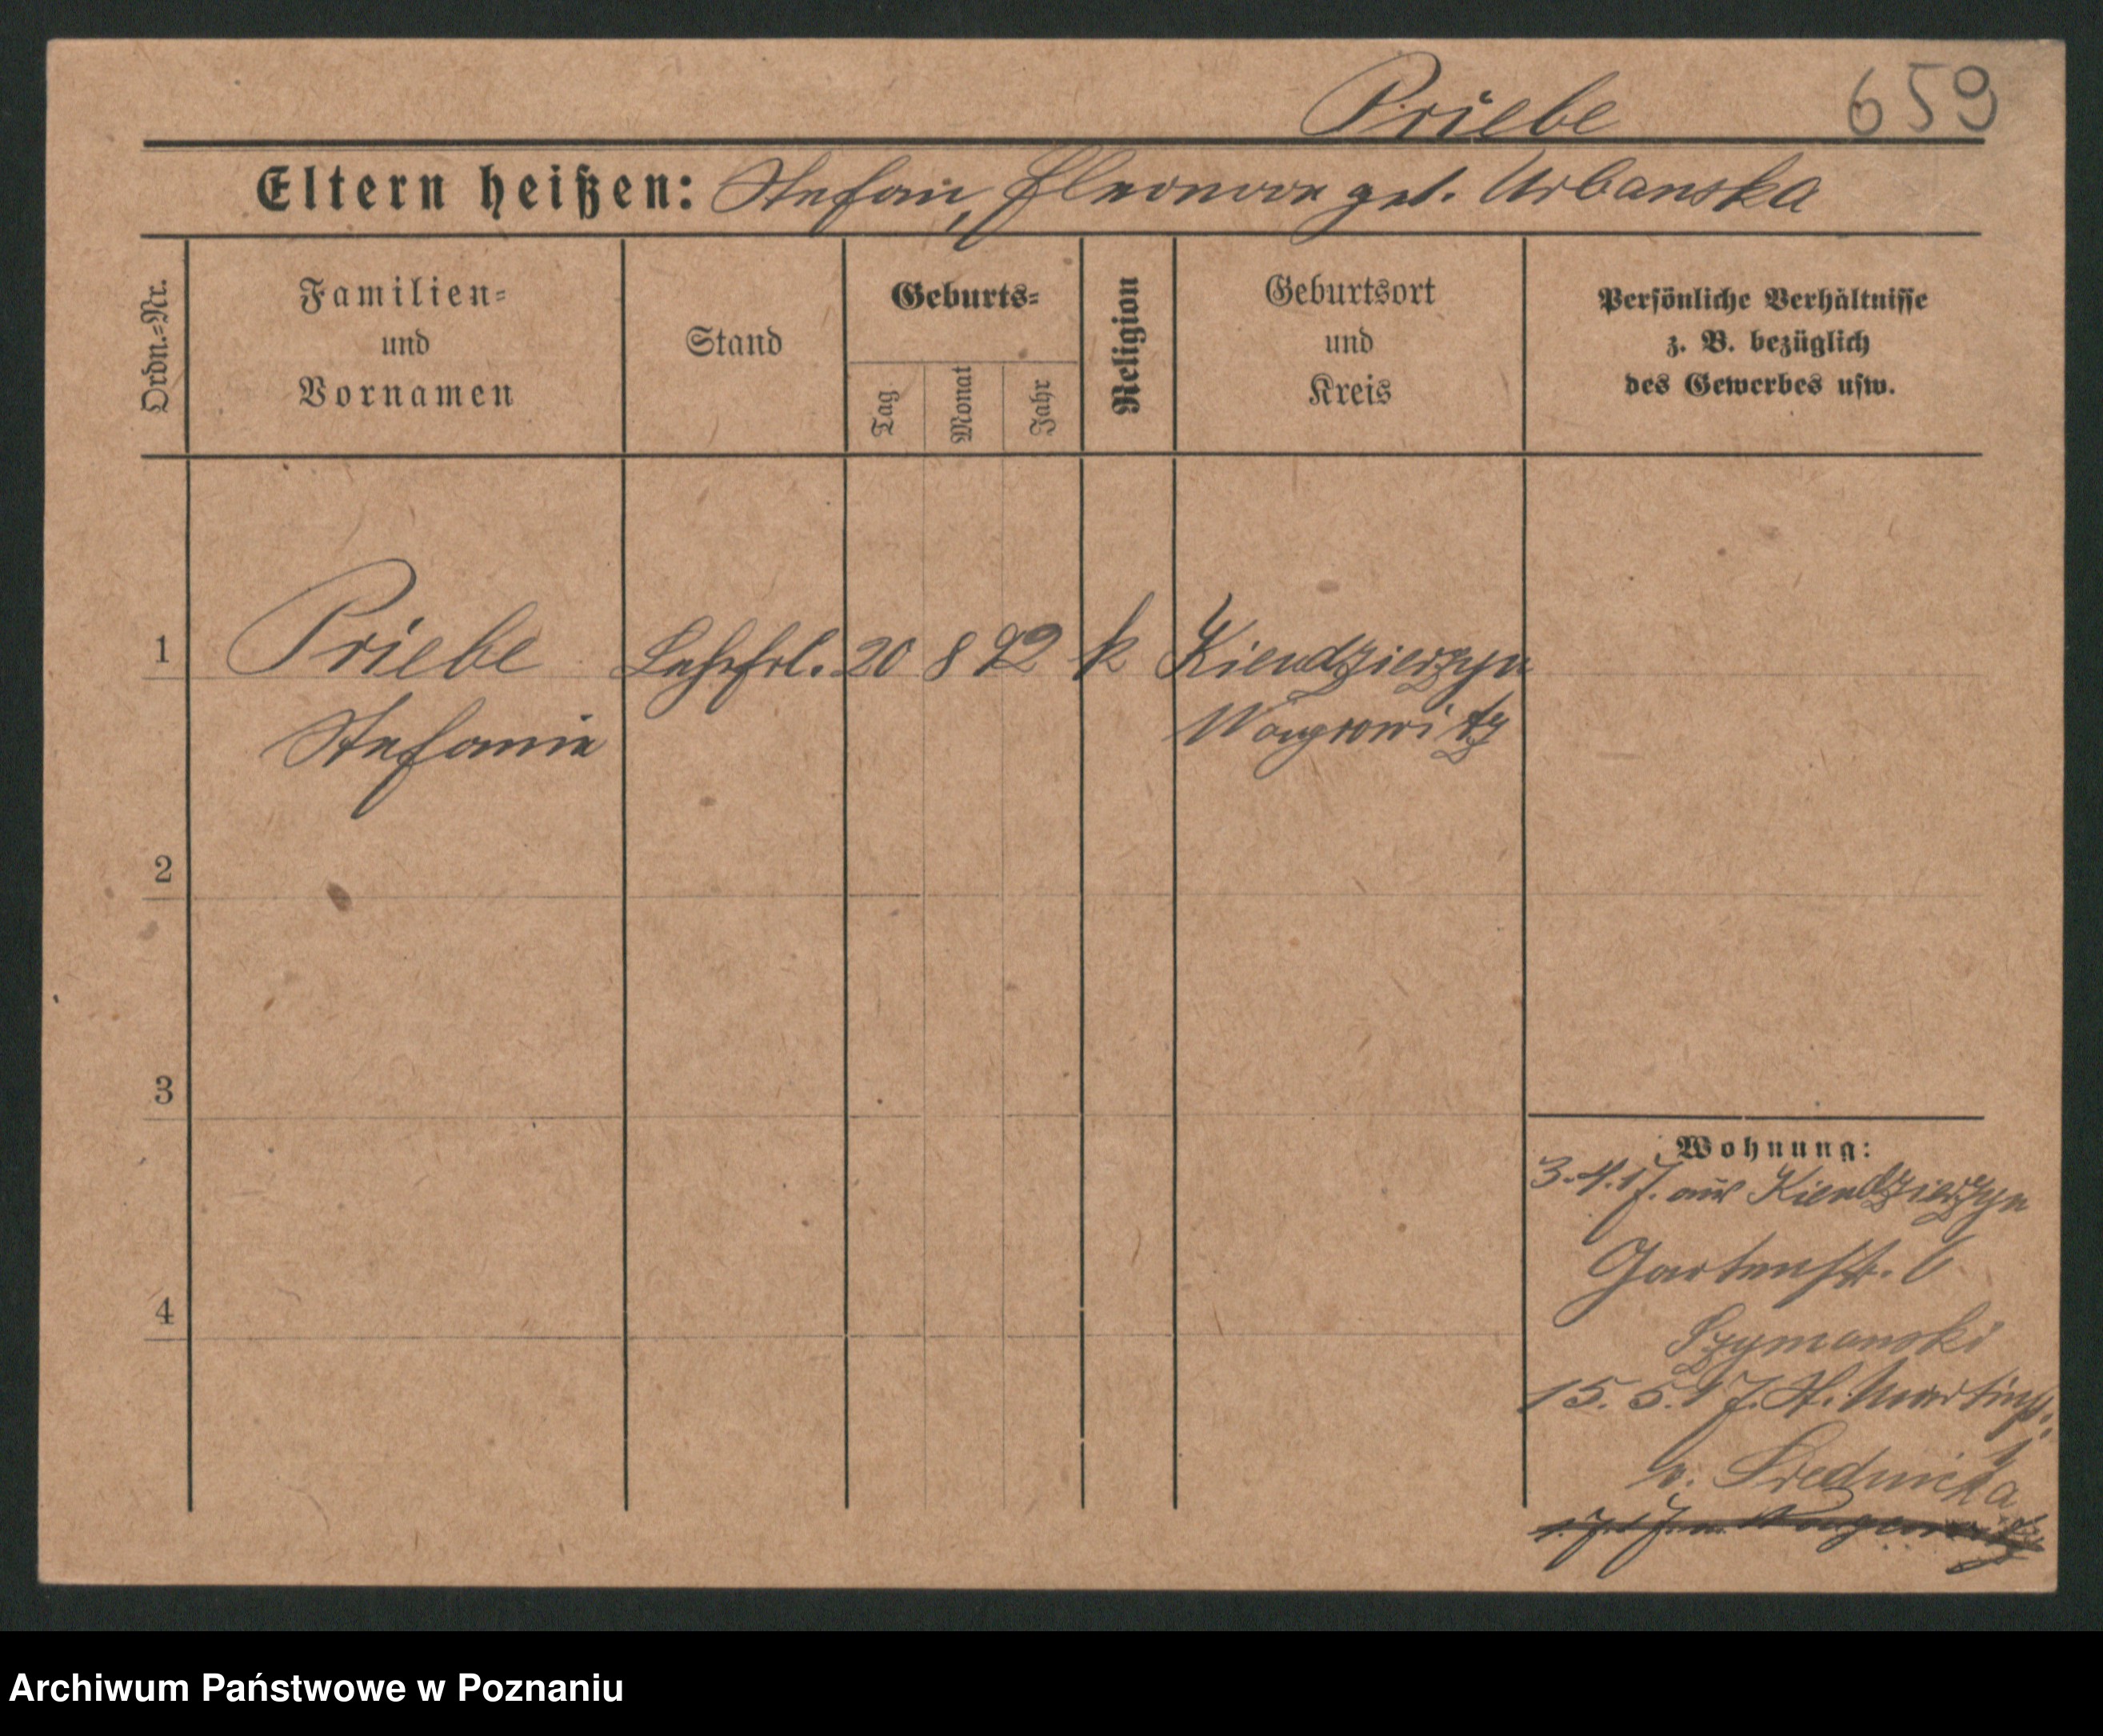 Priebe 659
Eltern heißen: Stefan, Eleonore geb. Urbanska
Ordn.-Nr.
Familien-
und
Vornamen
Stand
Geburts-
Tag
Monat
Jahr
Religion
Geburtsort
und
Kreis
Persönliche Verhältnisse
z. B. bezüglich
des Gewerbes usw.
1 Priebe Lehrfrl. 20 8 92 k Kiendzierzyn
Stefanie Wongrowitz
2
3
4
Wohnung:
3.4.17. aus Kiendzierzyn
Gartenstr.
Szymanski
15.5.17. St. Martinstr.
v. Srednicka
Archiwum Państwowe w Poznaniu